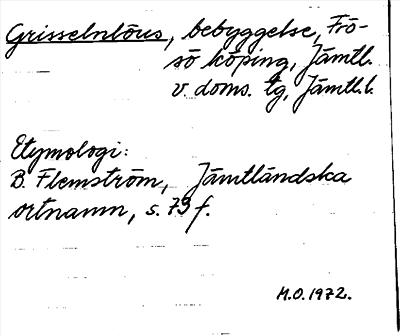 Grisselntåus, bebyggelse, Frö-
sö köping, Jämtl.
v. doms. tg, Jämtl. l.
Etymologi:
B. Flemström, Jämtländska
ortnamn, s. 79 f.
M.O. 1972.